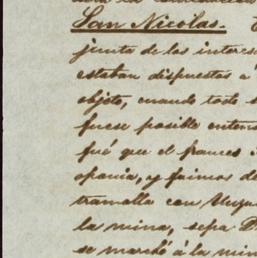 San Nicolas.
junta de los interes
estaban dispuestos a'
objeto, cuando todo
fuese posible enten
fué que el frances
oponia, y fuimos de
tramolla con
la mina, sepa D
se marchó á la min